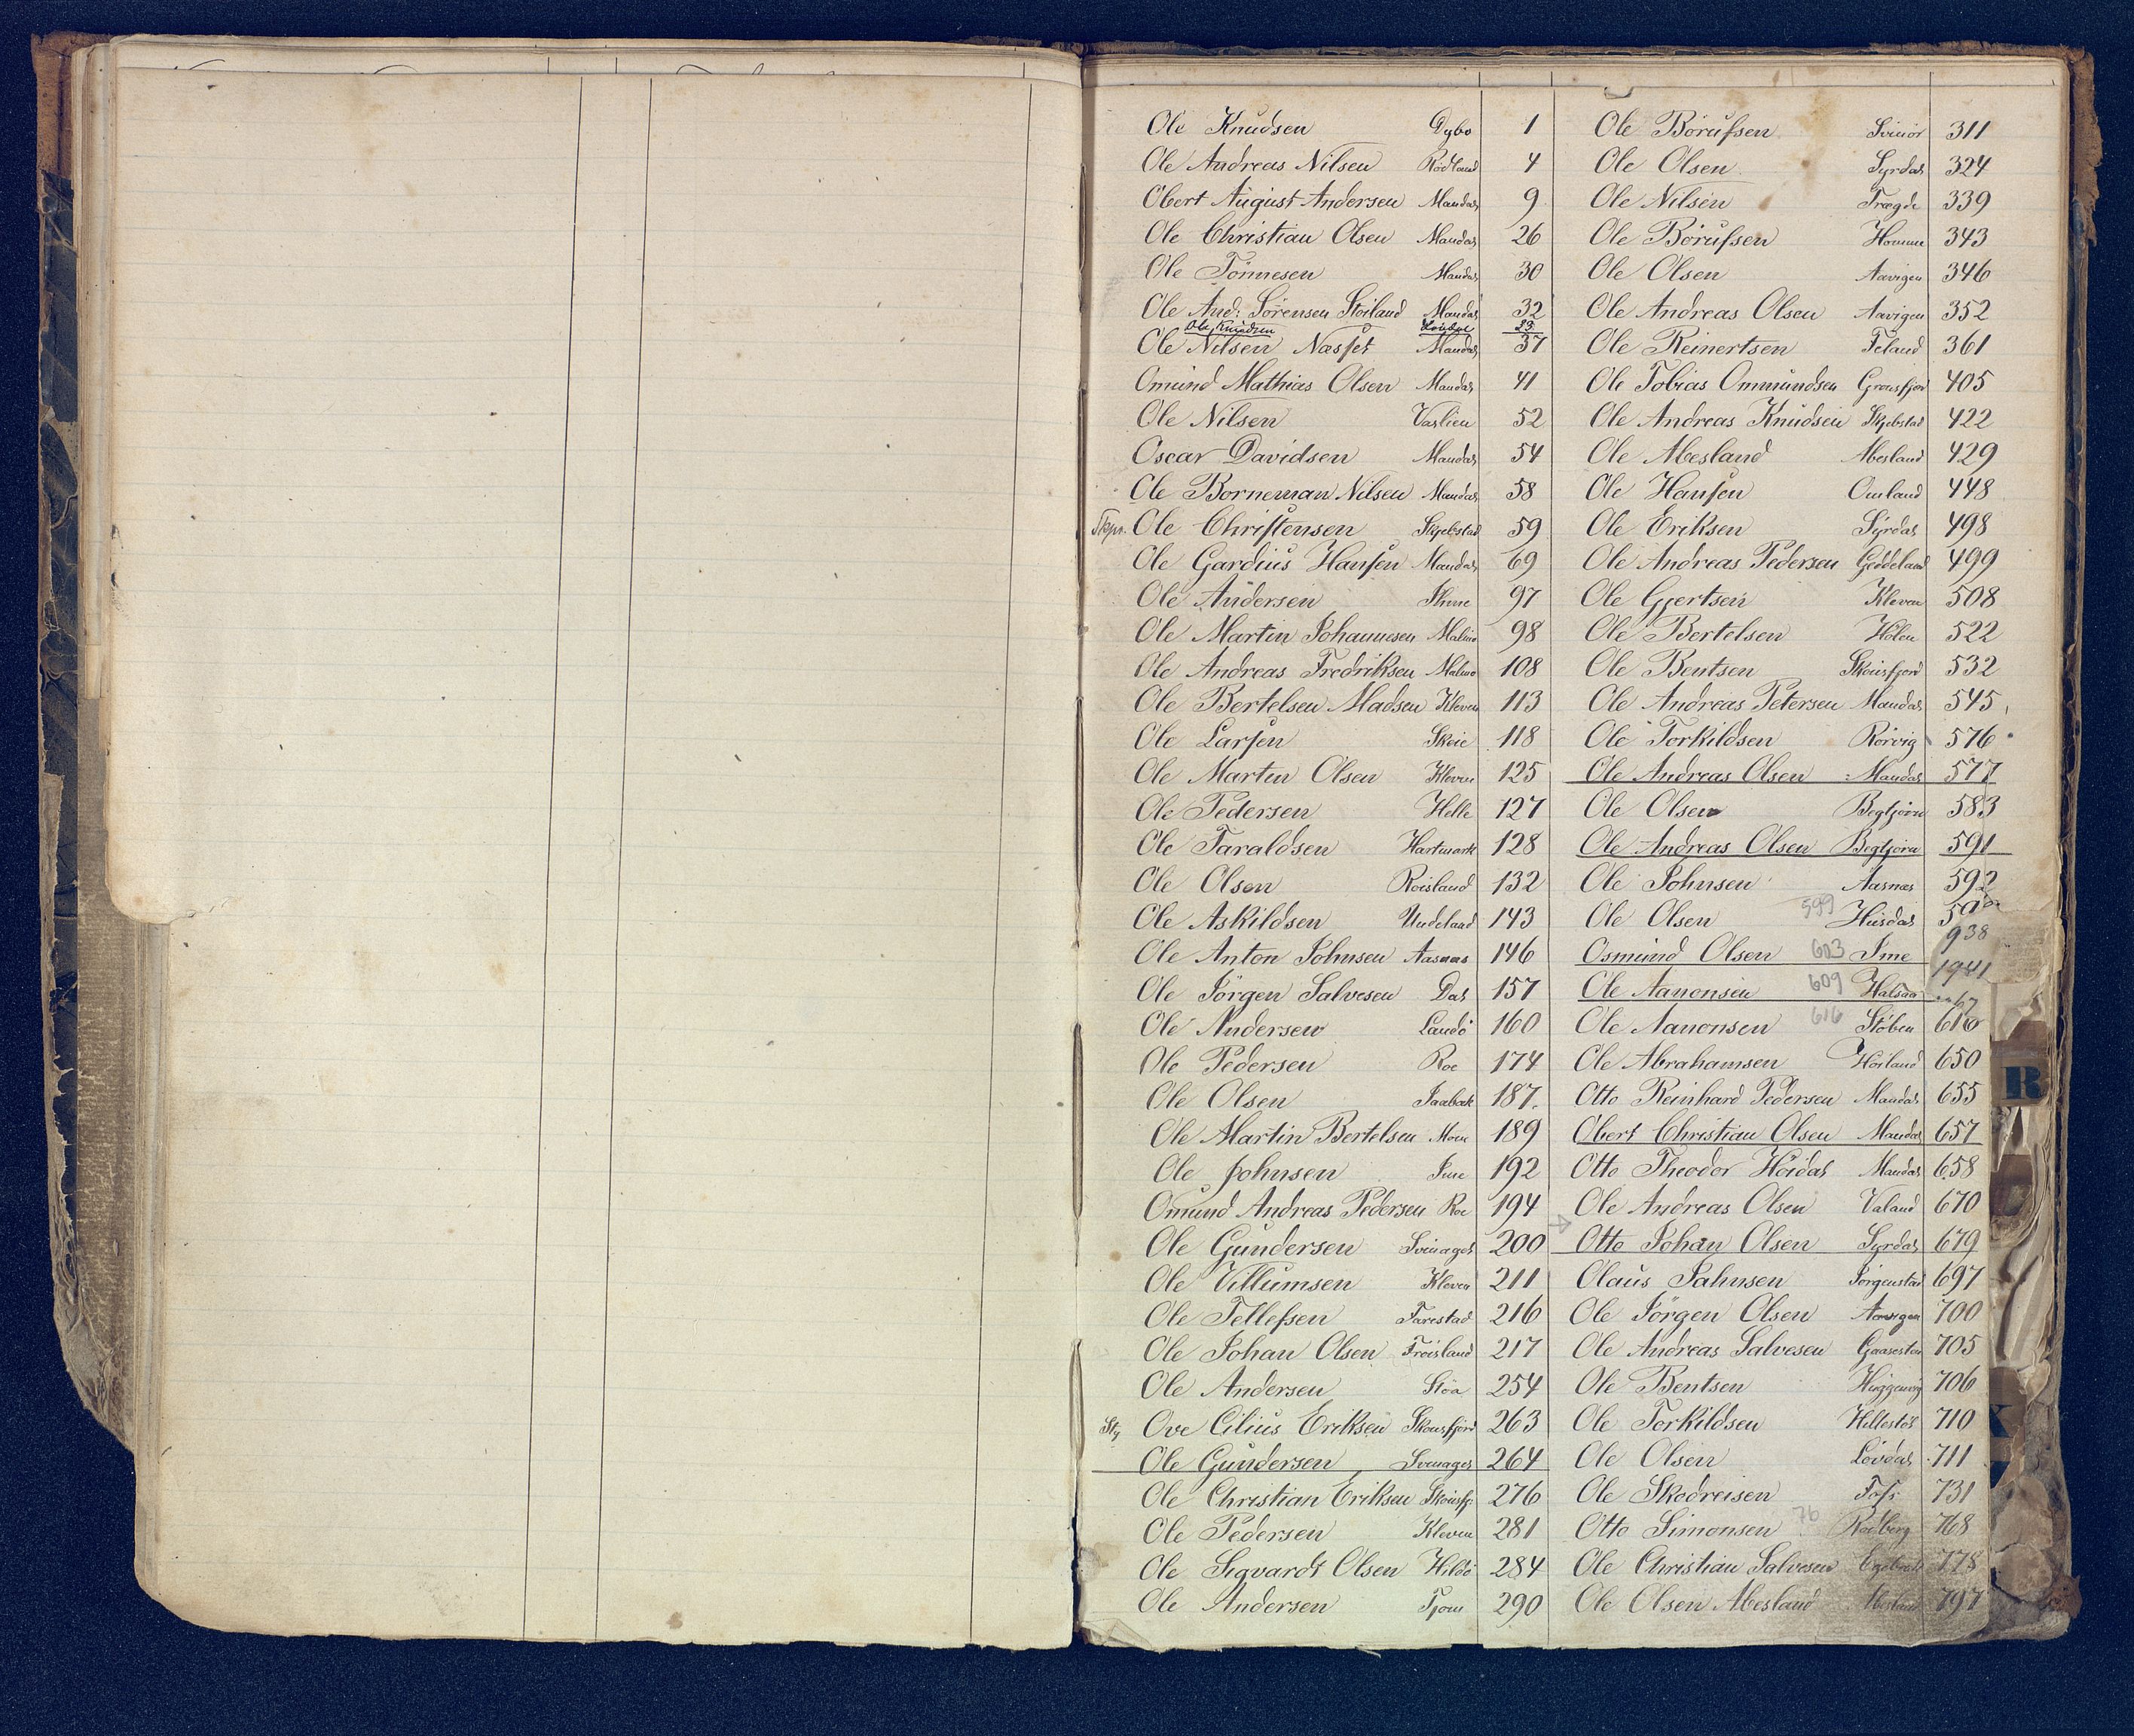 Ole Knudsen Dybo 1
Ole Andreas Nilsen Rödland 4
Obert August Andersen Mandal 9
Ole Christian Olsen Mandal 26
Ole Tönnesen Mandal 30
Ole And: Sörensen Störland Mandal 32
Ole Knudsen 23
Ole Nilsen Næsset Mandal 37
Omund Mathias Olsen Mandal 41
Ole Nilsen Vaslien 52
Oscar Davidsen Mandal 54
Ole Borneman Nilsen Mandal 58
Ole Christensen Skjebstad 59
Ole Gardius Hansen Mandal 69
Ole Andersen 97
Ole Martin Johannesen Malmö 98
Ole Andreas Fredriksen Malmö 108
Ole Bertelsen Madsen Kleven 113
Ole Larsen Skeie 118
Ole Martin Olsen Kleven 125
Ole Pedersen Helle 127
Ole Taraldsen Hartmark 128
Ole Olsen Roisland 132
Ole Askildsen Undeland 143
Ole Anton Johnsen Aasnæs 146
Ole Jörgen Salvesen Dal 157
Ole Andersen Landö 160
Ole Pedersen Roe 174
Ole Olsen Jaabæk 187.
Ole Martin Bertelsen Moen 189
Ole Johnsen Ime 192
Omund Andreas Pedersen Roe 194
Ole Gundersen Svinager 200
Ole Villumsen Kleven 211
Ole Tellefsen Farestad 216
Ole Johan Olsen Fröisland 217
Ole Andersen Stöa 254
Ove Cilius Eriksen Skonsfjord 263
Ole Gundersen Svinager 264
Ole Christian Eriksen 276
Ole Pedersen Kleven 281
Ole Sigvardt Olsen Hildö 284
Ole Andersen Tjom 290
Ole Börufsen Svinör 311
Ole Olsen Syrdal 324
Ole Nilsen Trægde 339
Ole Börufsen Homme 343
Ole Olsen Aavigen 346
Ole Andreas Olsen Aavigen 352
Ole Reinertsen 361
Ole Tobias Ommundsen Gronsfjor 405
Ole Andreas Knudsen Skjebstad 422
Ole Abesland Abesland 429
Ole Hansen Omland 448
Ole Eriksen Syrdal 498
Ole Andreas Pedersen Geddeland 499
Ole Gjertsen Kleven 508
Ole Bertelsen Holen 522
Ole Bentsen Skonsfjord 532
Ole Andreas Petersen Mandal 545
Ole Torkildsen Rörvig 576
Ole Andreas Olsen Mandal 577
Ole Olsen Begtjörn 583
Ole Andreas Olsen Begtjörn 591
Ole Johnsen Aasnæs 592
Ole Olsen 599 Husdal
938
Osmund Olsen 603 Ime 1941
Ole Aanonsen 609 Halsaa
Ole Aanonsen 616 Stöben 616
Ole Abrahamsen Höiland 650
Otto Reinhard Pedersen Mandal 655
Obert Christian Olsen Mandal 657
Otto Theodor Höidal Mandal 658
Ole Andreas Olsen Valand 670
Otto Johan Olsen Syrdal 679
Olaus Jahnsen Jörgenstad 697
Ole Jörgen Olsen Aavigen 700
Ole Andreas Salvesen 705
Ole Bentsen 706
Ole Torkildsen 710
Ole Olsen Lövdal 711
Ole Skedreisen Foss 731
Otto Simonsen 76 Rödberg 768
Ole Christian Salvesen 778
Ole Olsen Abesland Abesland 797
R